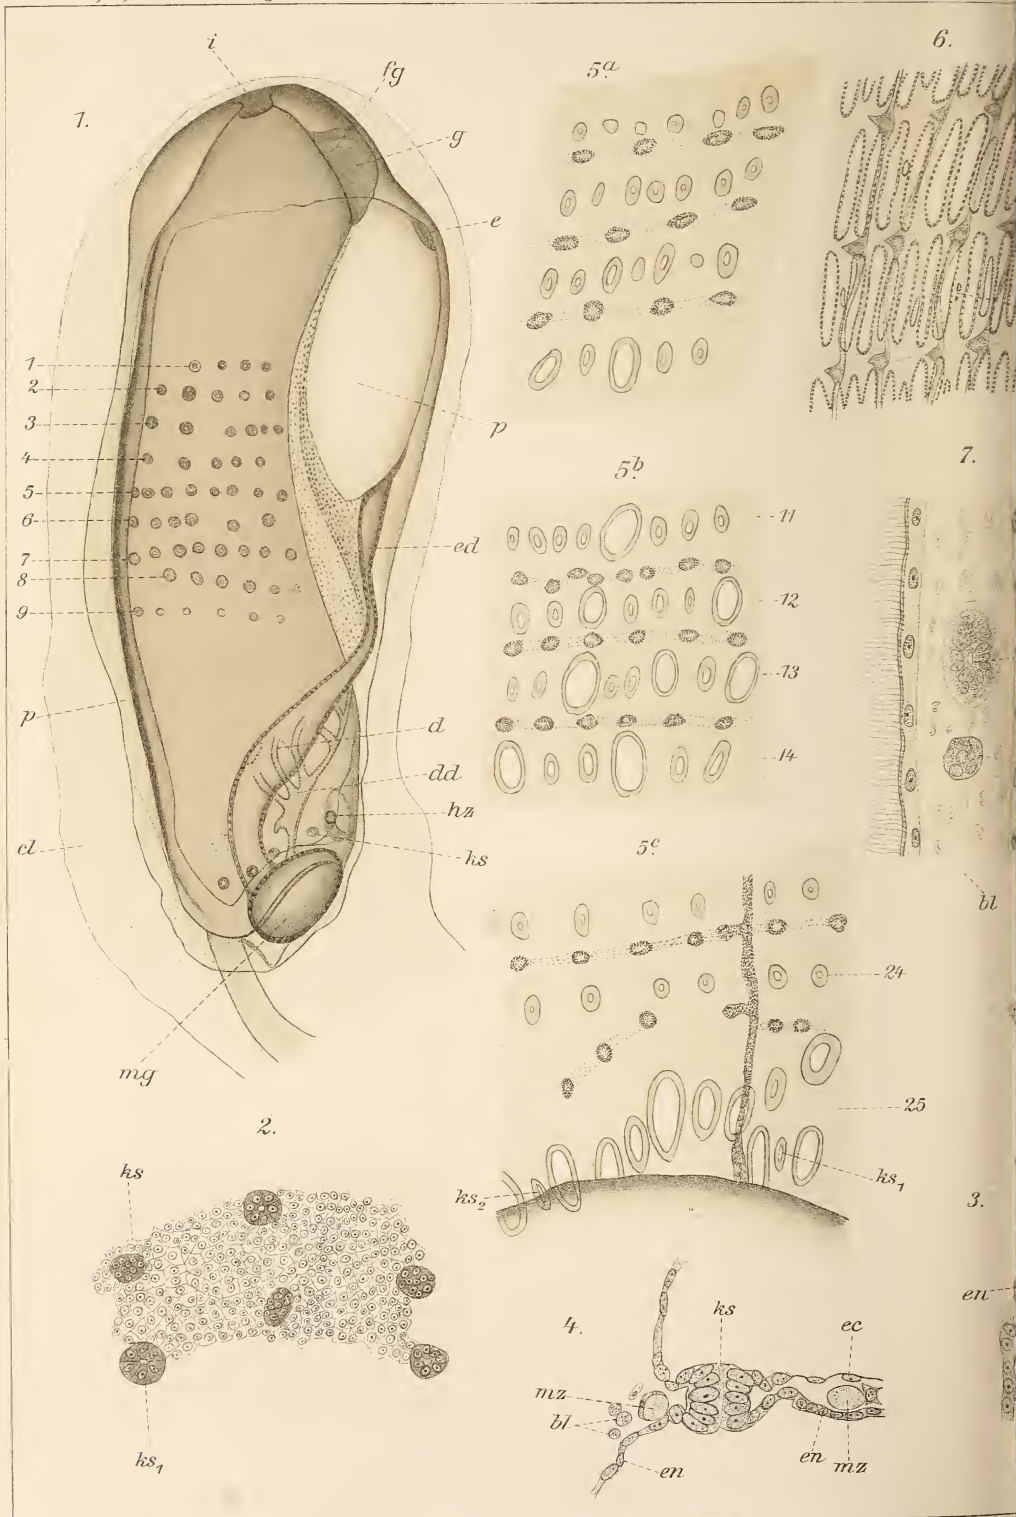 1.
i
fg
g
e
1
2
3
4
5
6
7
8
9
p
ed
p
d
dd
hz
ks
cl
mg
2.
ks
ks1
5a.
5b.
11
12
13
14
5c.
24
25
ks1
ks2
6.
7.
bl
3.
en
4.
ks
ec
mz
bl
en
en
mz